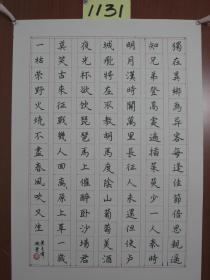 1131
獨在異鄉為異客每逢佳節倍思親遙
知兄弟登高處遍插茱萸少一人秦時
明月漢時關萬里長征人未還但使
城飛將在不教胡馬度陰山葡萄美酒
夜光杯欲飲琵琶馬上催醉臥沙場君
莫笑古來征戰幾人回離原上草一歲
一枯榮野火燒不盡春風吹又生